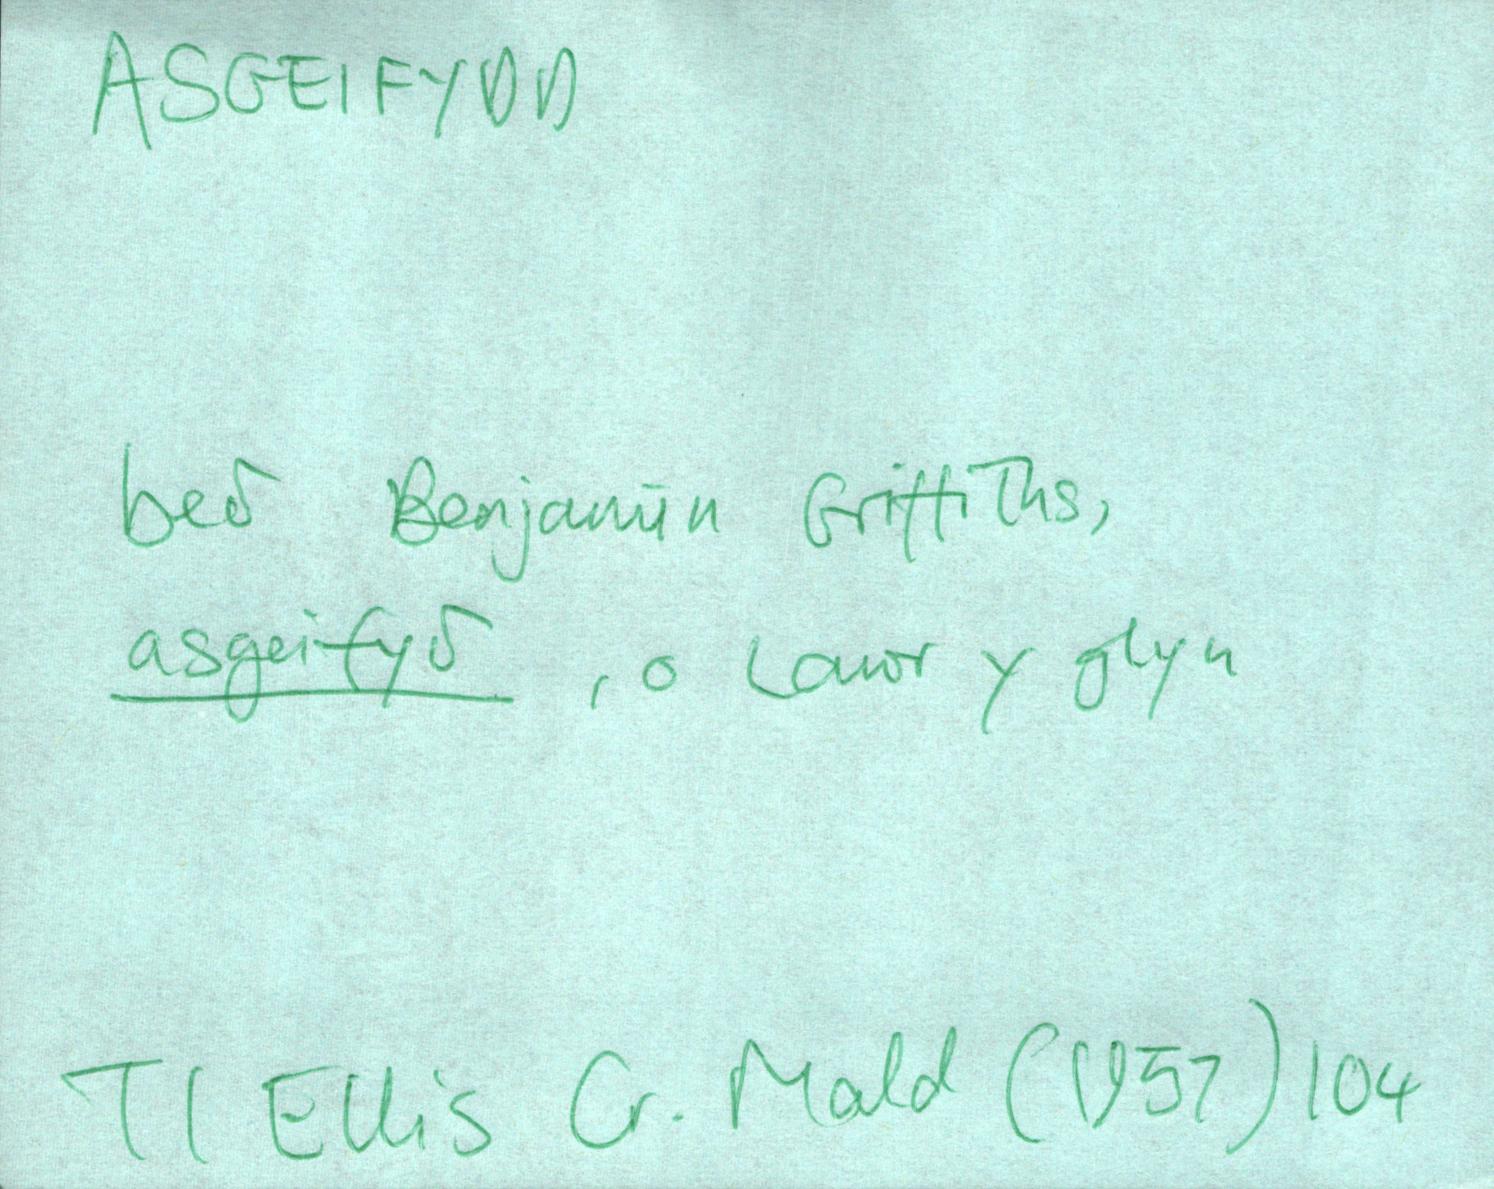 ASGEIFYDD
beδ Benjamin Griffiths,
asgeifyδ, o Lawr y glyn
TI Ellis Cr. Mald (1957) 104